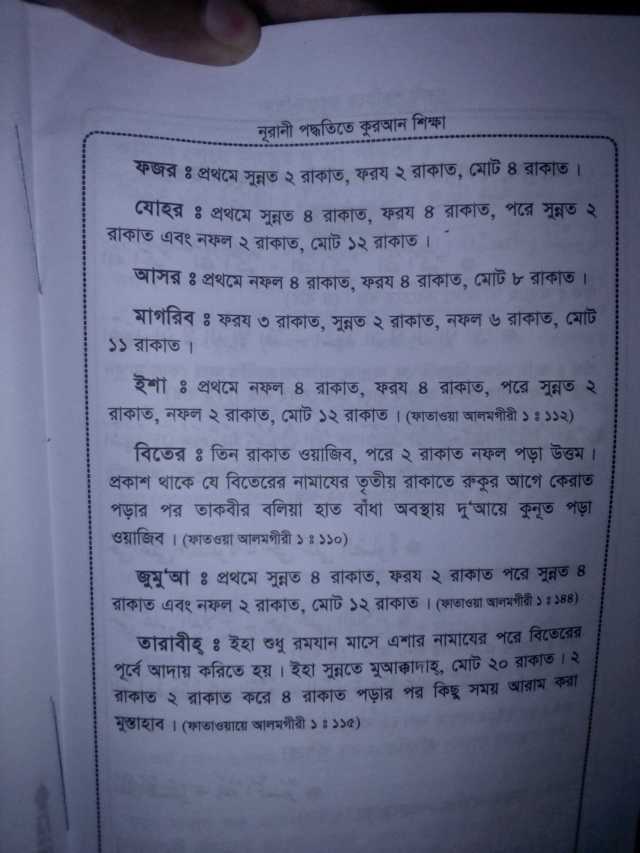 নূরানী পদ্ধতিতে কুরআন শিক্ষা
ফজর ঃ প্রথমে সুন্নত ২ রাকাত, ফরয ২ রাকাত, মোট ৪ রাকাত ।
যোহর ঃ প্রথমে সুন্নত ৪ রাকাত, ফরয ৪ রাকাত, পরে সুন্নত ২
রাকাত এবং নফল ২ রাকাত, মোট ১২ রাকাত ।
আসর ঃ প্রথমে নফল ৪ রাকাত, ফরয ৪ রাকাত, মোট ৮ রাকাত ।
মাগরিব ঃ ফরয ৩ রাকাত, সুন্নত ২ রাকাত, নফল ৬ রাকাত, মোট
১১ রাকাত ।
ইশা ঃ প্রথমে নফল ৪ রাকাত, ফরয ৪ রাকাত, পরে সুন্নত ২
রাকাত, নফল ২ রাকাত, মোট ১২ রাকাত । (ফাতাওয়া আলমগীরী ১ ঃ ১১২)
বিতের ঃ তিন রাকাত ওয়াজিব, পরে ২ রাকাত নফল পড়া উত্তম ।
প্রকাশ থাকে যে বিতেরের নামাযের তৃতীয় রাকাতে রুকুর আগে কেরাত
পড়ার পর তাকবীর বলিয়া হাত বাঁধা অবস্থায় দু‘আয়ে কুনূত পড়া
ওয়াজিব । (ফাতওয়া আলমগীরী ১ ঃ ১১০)
জুমু‘আ ঃ প্রথমে সুন্নত ৪ রাকাত, ফরয ২ রাকাত পরে সুন্নত ৪
রাকাত এবং নফল ২ রাকাত, মোট ১২ রাকাত । (ফাতাওয়া আলমগীরী ১ ঃ ১৪৪)
তারাবীহ্ ঃ ইহা শুধু রমযান মাসে এশার নামাযের পরে বিতেরের
পূর্বে আদায় করিতে হয় । ইহা সুন্নতে মুআক্কাদাহ্, মোট ২০ রাকাত । ২
রাকাত ২ রাকাত করে ৪ রাকাত পড়ার পর কিছু সময় আরাম করা
মুস্তাহাব । (ফাতাওয়ায়ে আলমগীরী ১ ঃ ১১৫)